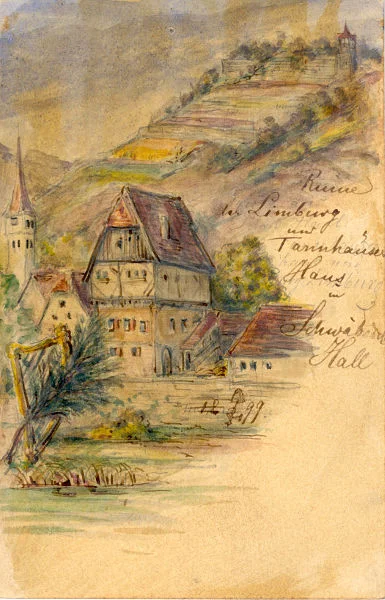 Ruine
der Limburg
und
Tannhäuser
Haus
in
Schwäbisch
Hall
99.